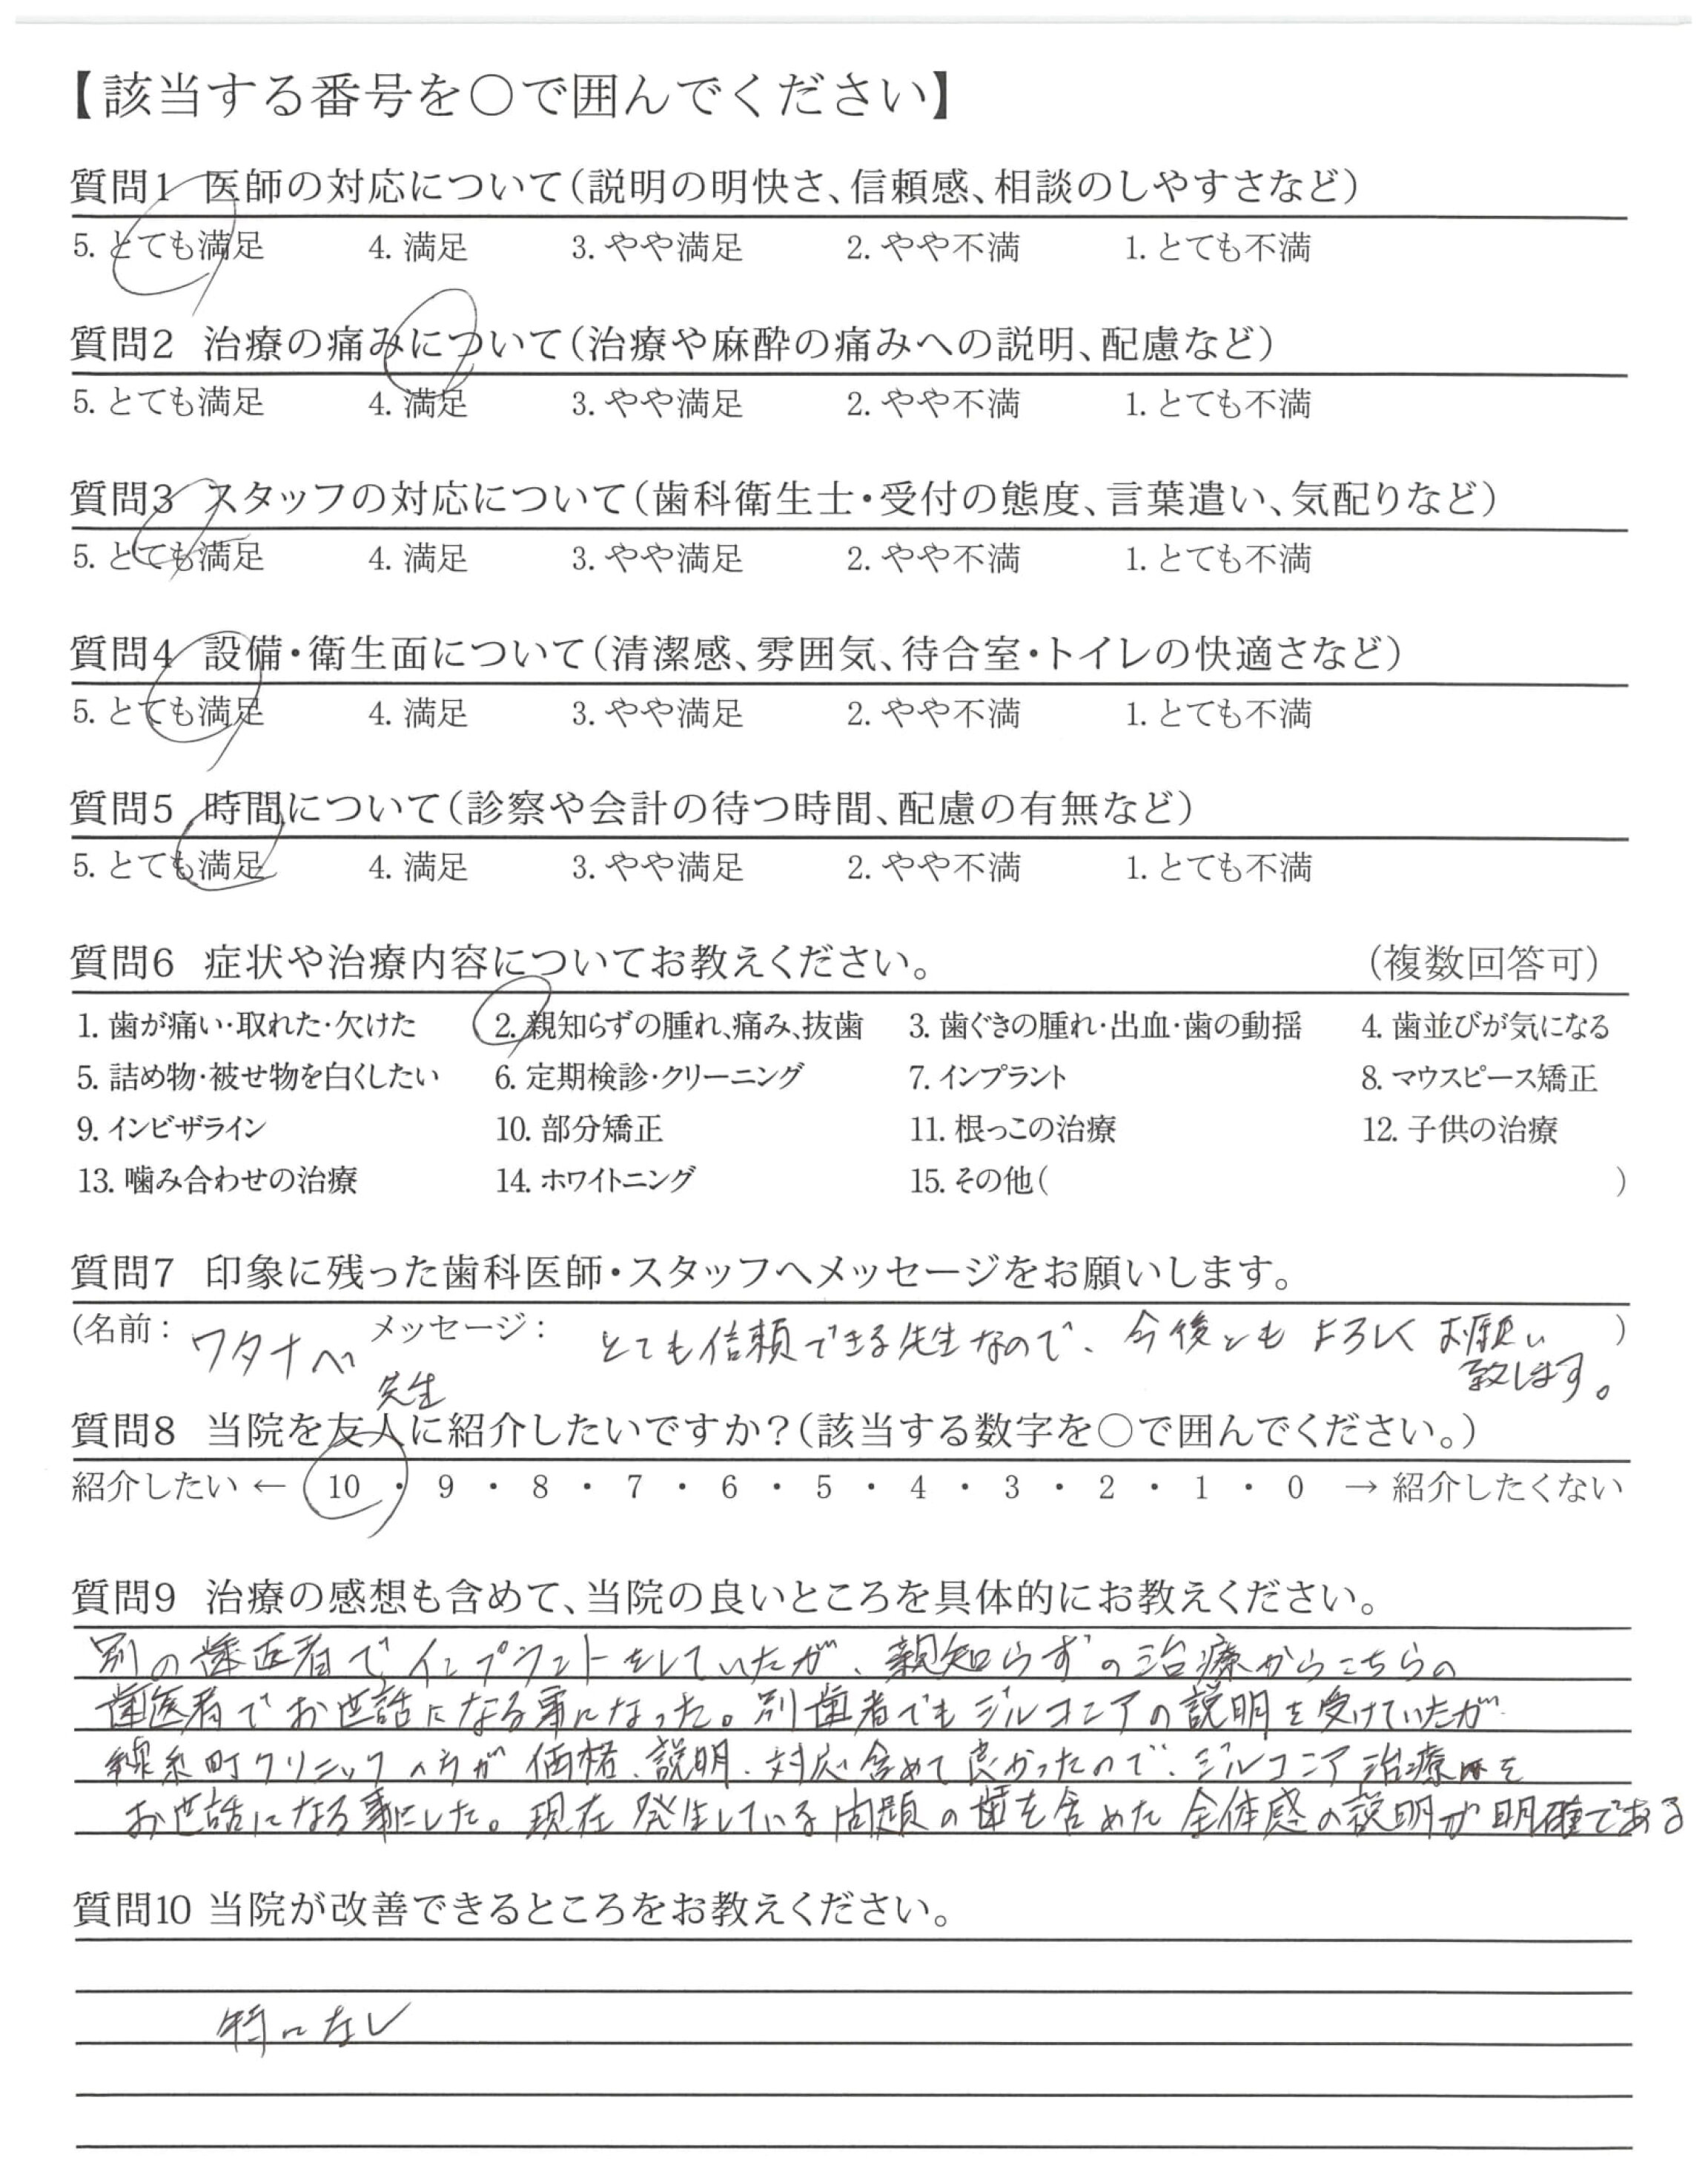 【該当する番号を○で囲んでください】
質問1 医師の対応について(説明の明快さ、信頼感、相談のしやすさなど)
5. とても満足 4. 満足 3. やや満足 2. やや不満 1. とても不満
質問2 治療の痛みについて(治療や麻酔の痛みへの説明、配慮など)
5. とても満足 4. 満足 3. やや満足 2. やや不満 1. とても不満
質問3 スタッフの対応について(歯科衛生士・受付の態度、言葉遣い、気配りなど)
5. とても満足 4. 満足 3. やや満足 2. やや不満 1. とても不満
質問4 設備・衛生面について(清潔感、雰囲気、待合室・トイレの快適さなど)
5. とても満足 4. 満足 3. やや満足 2. やや不満 1. とても不満
質問5 時間について(診察や会計の待つ時間、配慮の有無など)
5. とても満足 4. 満足 3. やや満足 2. やや不満 1. とても不満
質問6 症状や治療内容についてお教えください。 (複数回答可)
1. 歯が痛い・取れた・欠けた 2. 親知らずの腫れ、痛み、抜歯 3. 歯ぐきの腫れ・出血・歯の動揺 4. 歯並びが気になる
5. 詰め物・被せ物を白くしたい 6. 定期検診・クリーニング 7. インプラント 8. マウスピース矯正
9. インビザライン 10. 部分矯正 11. 根っこの治療 12. 子供の治療
13. 噛み合わせの治療 14. ホワイトニング 15. その他( )
質問7 印象に残った歯科医師・スタッフへメッセージをお願いします。
(名前: ワタナベ メッセージ: とても信頼できる先生なので、今後ともよろしくお願い )
先生 致します。
質問8 当院を友人に紹介したいですか?(該当する数字を○で囲んでください。)
紹介したい ← 10 ・ 9 ・ 8 ・ 7 ・ 6 ・ 5 ・ 4 ・ 3 ・ 2 ・ 1 ・ 0 → 紹介したくない
質問9 治療の感想も含めて、当院の良いところを具体的にお教えください。
別の歯医者でインプラントをしていたが、親知らずの治療からこちらの
歯医者でお世話になる事になった。別歯者でもジルコニアの説明を受けていたが
錦糸町クリニックの方が価格、説明、対応含めて良かったので、ジルコニア治療を
お世話になる事にした。現在発生している問題の歯を含めた全体感の説明が明確である
質問10 当院が改善できるところをお教えください。
特になし